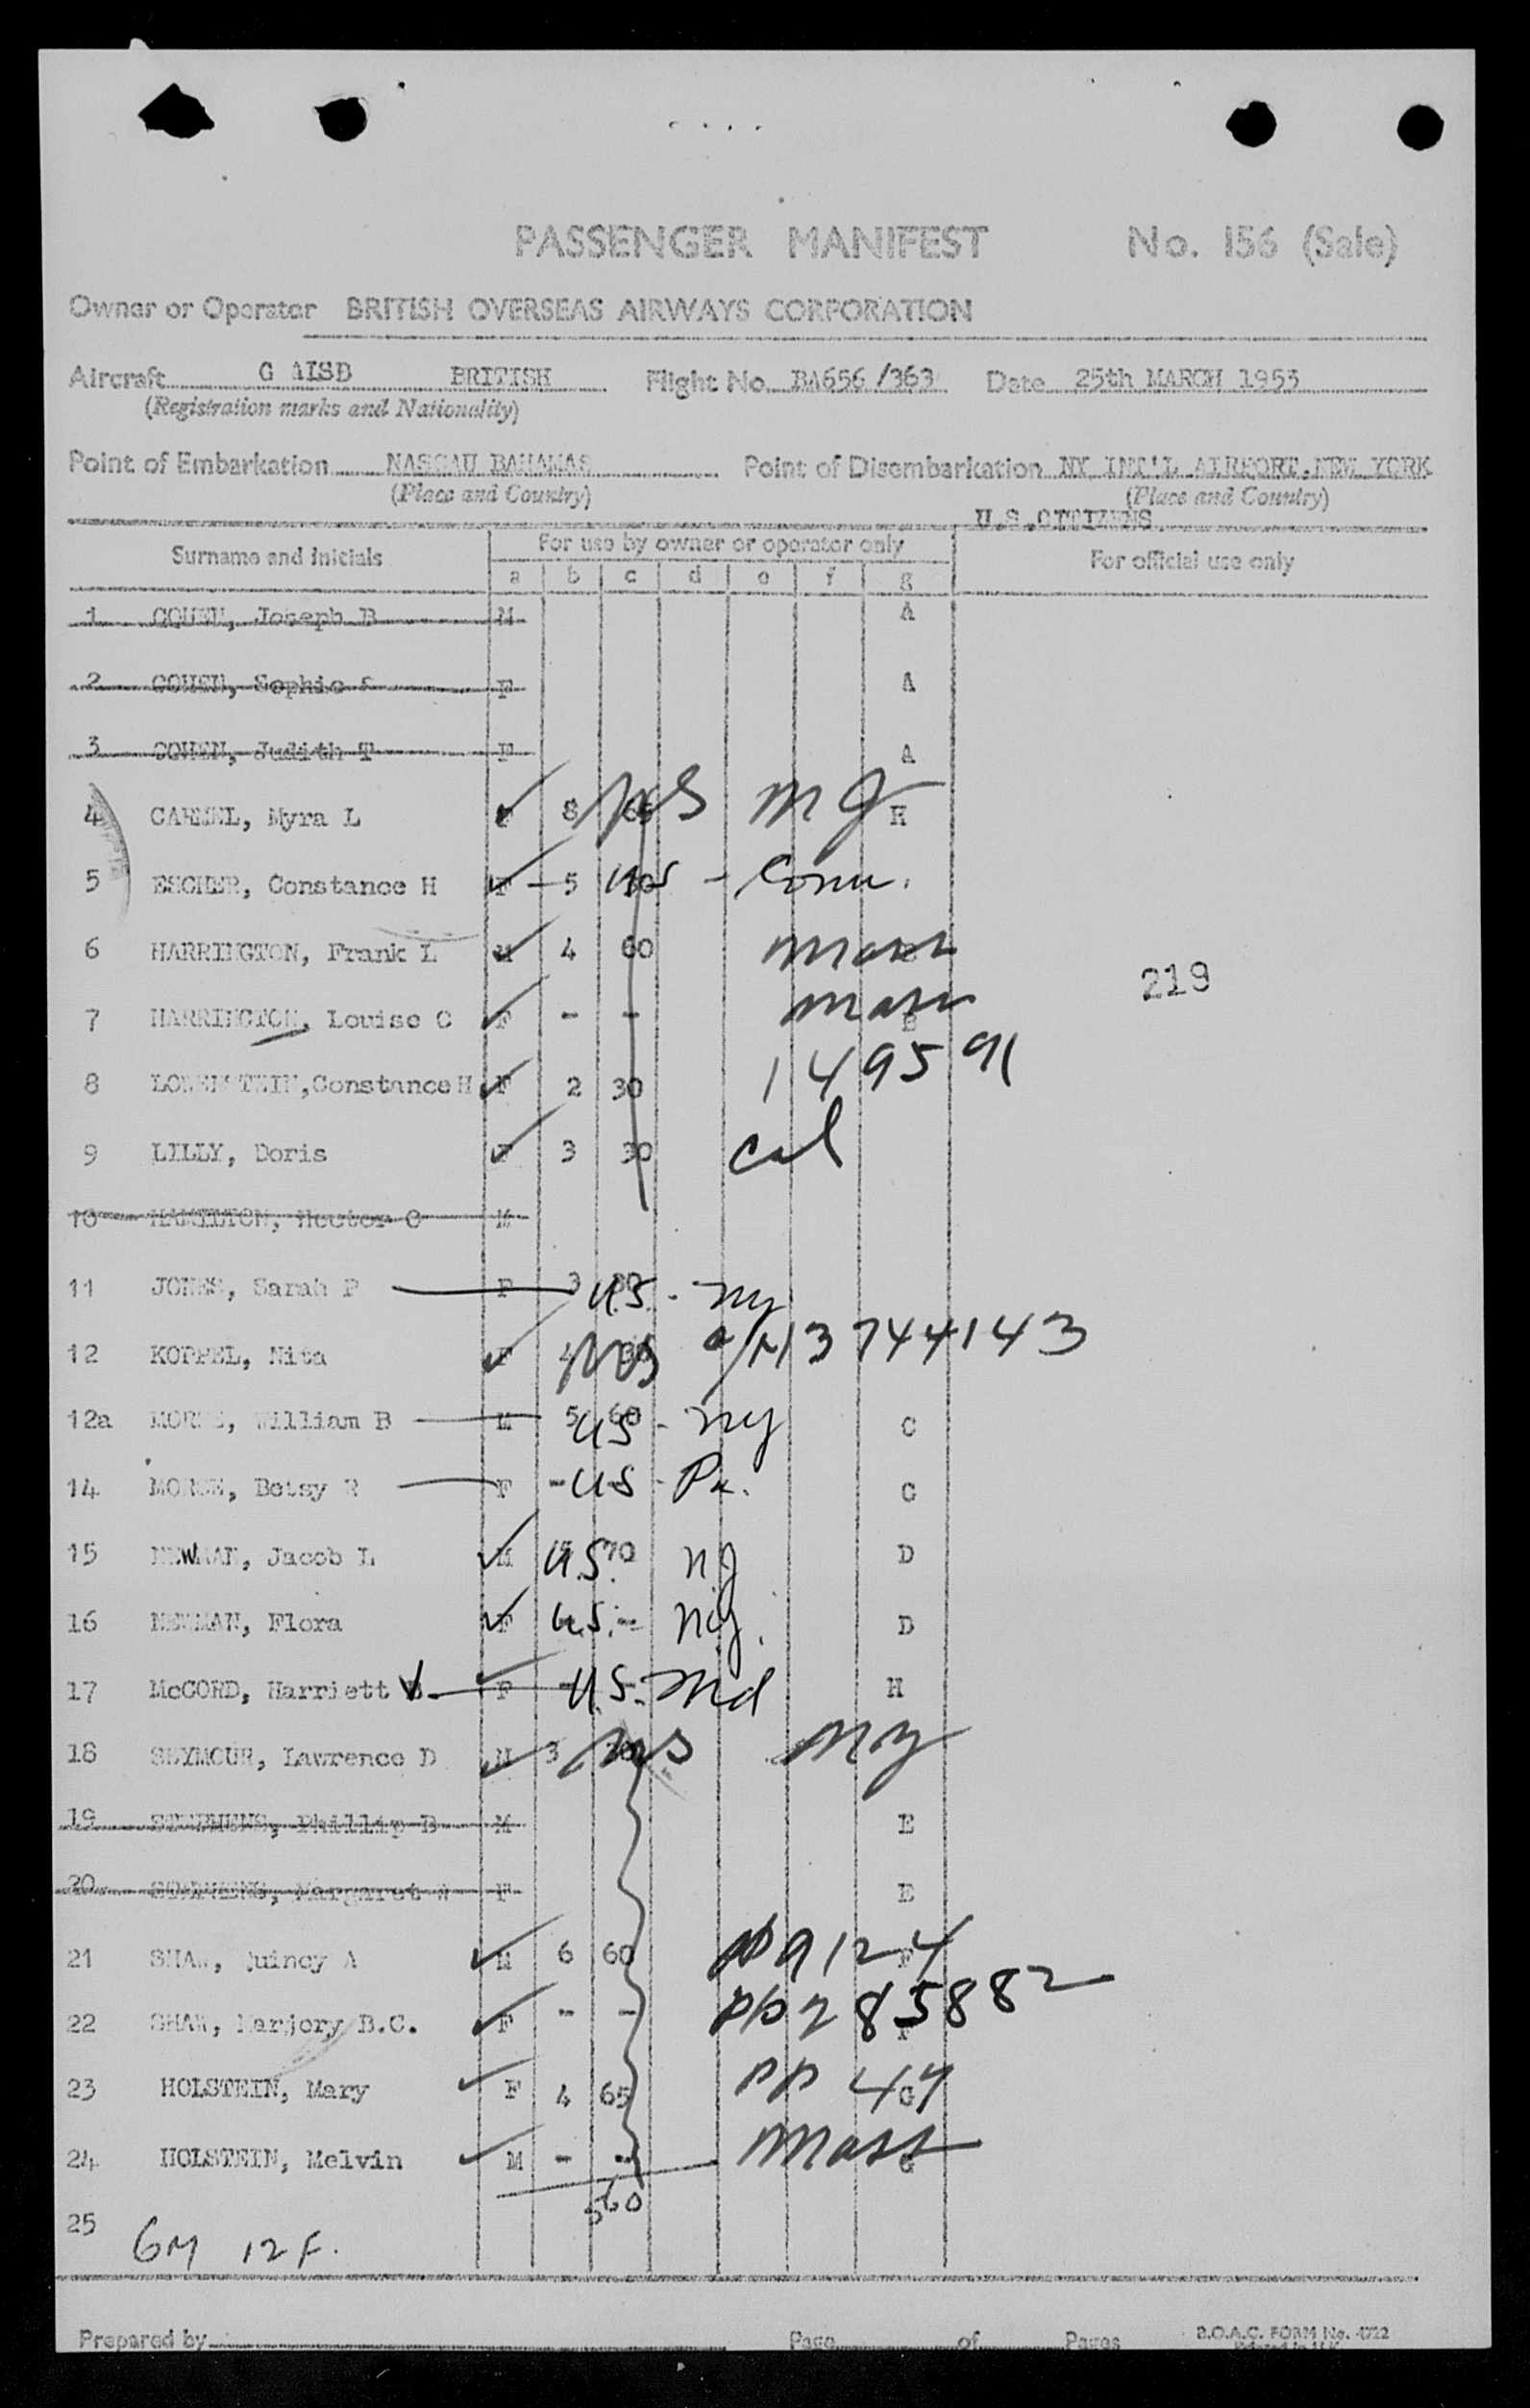 PASSENGER MANIFEST No. 156 (Sale)
Owner or Operator BRITISH OVERSEAS AIRWAYS CORPORATION
Aircraft G AISD BRITISH Flight No. BA656/363 Date 25th MARCH 1953
(Registration marks and Nationality)
Point of Embarkation NASSAU BAHAMAS Point of Disembarkation NY INT'L AIRPORT. NEW YORK
(Place and Country) (Place and Country)
U.S.CITIZENS
Surname and initials For use by owner or operator only For official use only
a b c d e f g
1 COHEN, Joseph B M A
2 COHEN, Sophie F A
3 COHEN, Judith T F A
4 Myra L F 8 65 US H
5 ESCHER, Constance H F - 5 US - Conn.
6 HARRINGTON, Frank L M 4 60 Mass
219
7 HARRINGTON, Louise C F - - Mass B
8 LOWENSTEIN, Constance H F 2 30 149591
9 LILLY, Doris F 3 30 Cal
10 HAMILTON, Hector C M
11 JONES, Sarah P F 3 30 U.S. - NY
12 KOPPEL, Nita F 4 US 13744143
12a MORSE, William B M 5 60 US - NY C
14 MORSE, Betsy R F - US - Pa. C
15 NEWMAN, Jacob L M U.S. 70 NJ D
16 NEWMAN, Flora F U.S. - D
17 McCORD, Harriett F U.S. - Md H
18 SEYMOUR, Lawrence D M 3 US NY
19 STEPHENS, Phillip B M E
20 STEPHENS, Margaret W F E
21 SHAW, Quincy A M 6 60 PP 9124 F
22 SHAW, Marjory B.C. F - - PP 285882 F
23 HOLSTEIN, Mary F 4 65 PP 44 G
24 HOLSTEIN, Melvin M - - Mass G
560
25
6M 12F.
Prepared by Page of Pages B.O.A.C. FORM No. 4722
Printed in U.K.